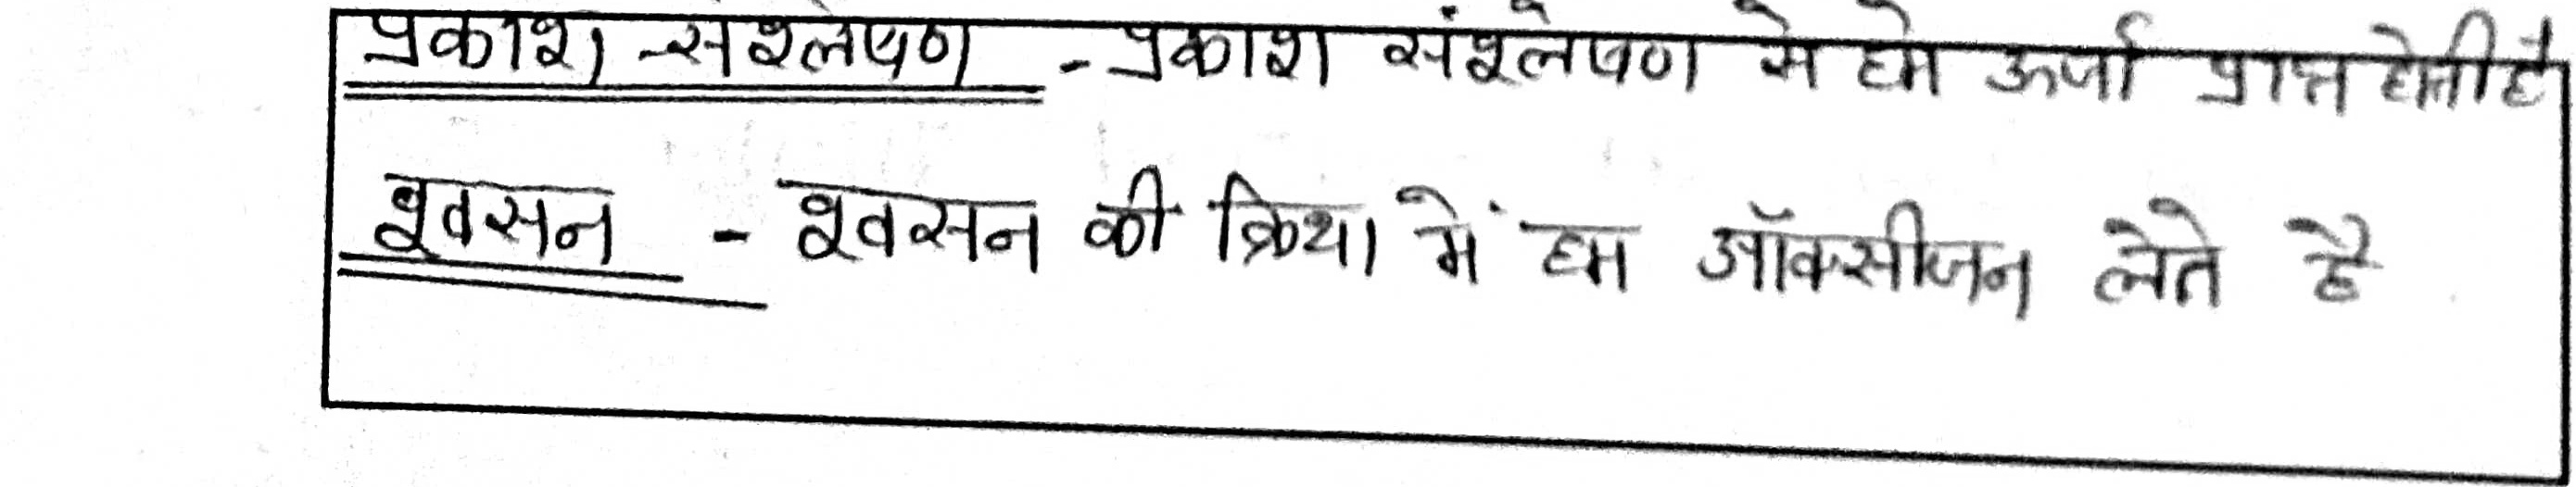 प्रकाश संश्लेषण - प्रकाश संश्लेषण से हमे ऊर्जा प्राप्त होती है
श्वसन - श्वसन की क्रिया में हम ऑक्सीजन लेते है